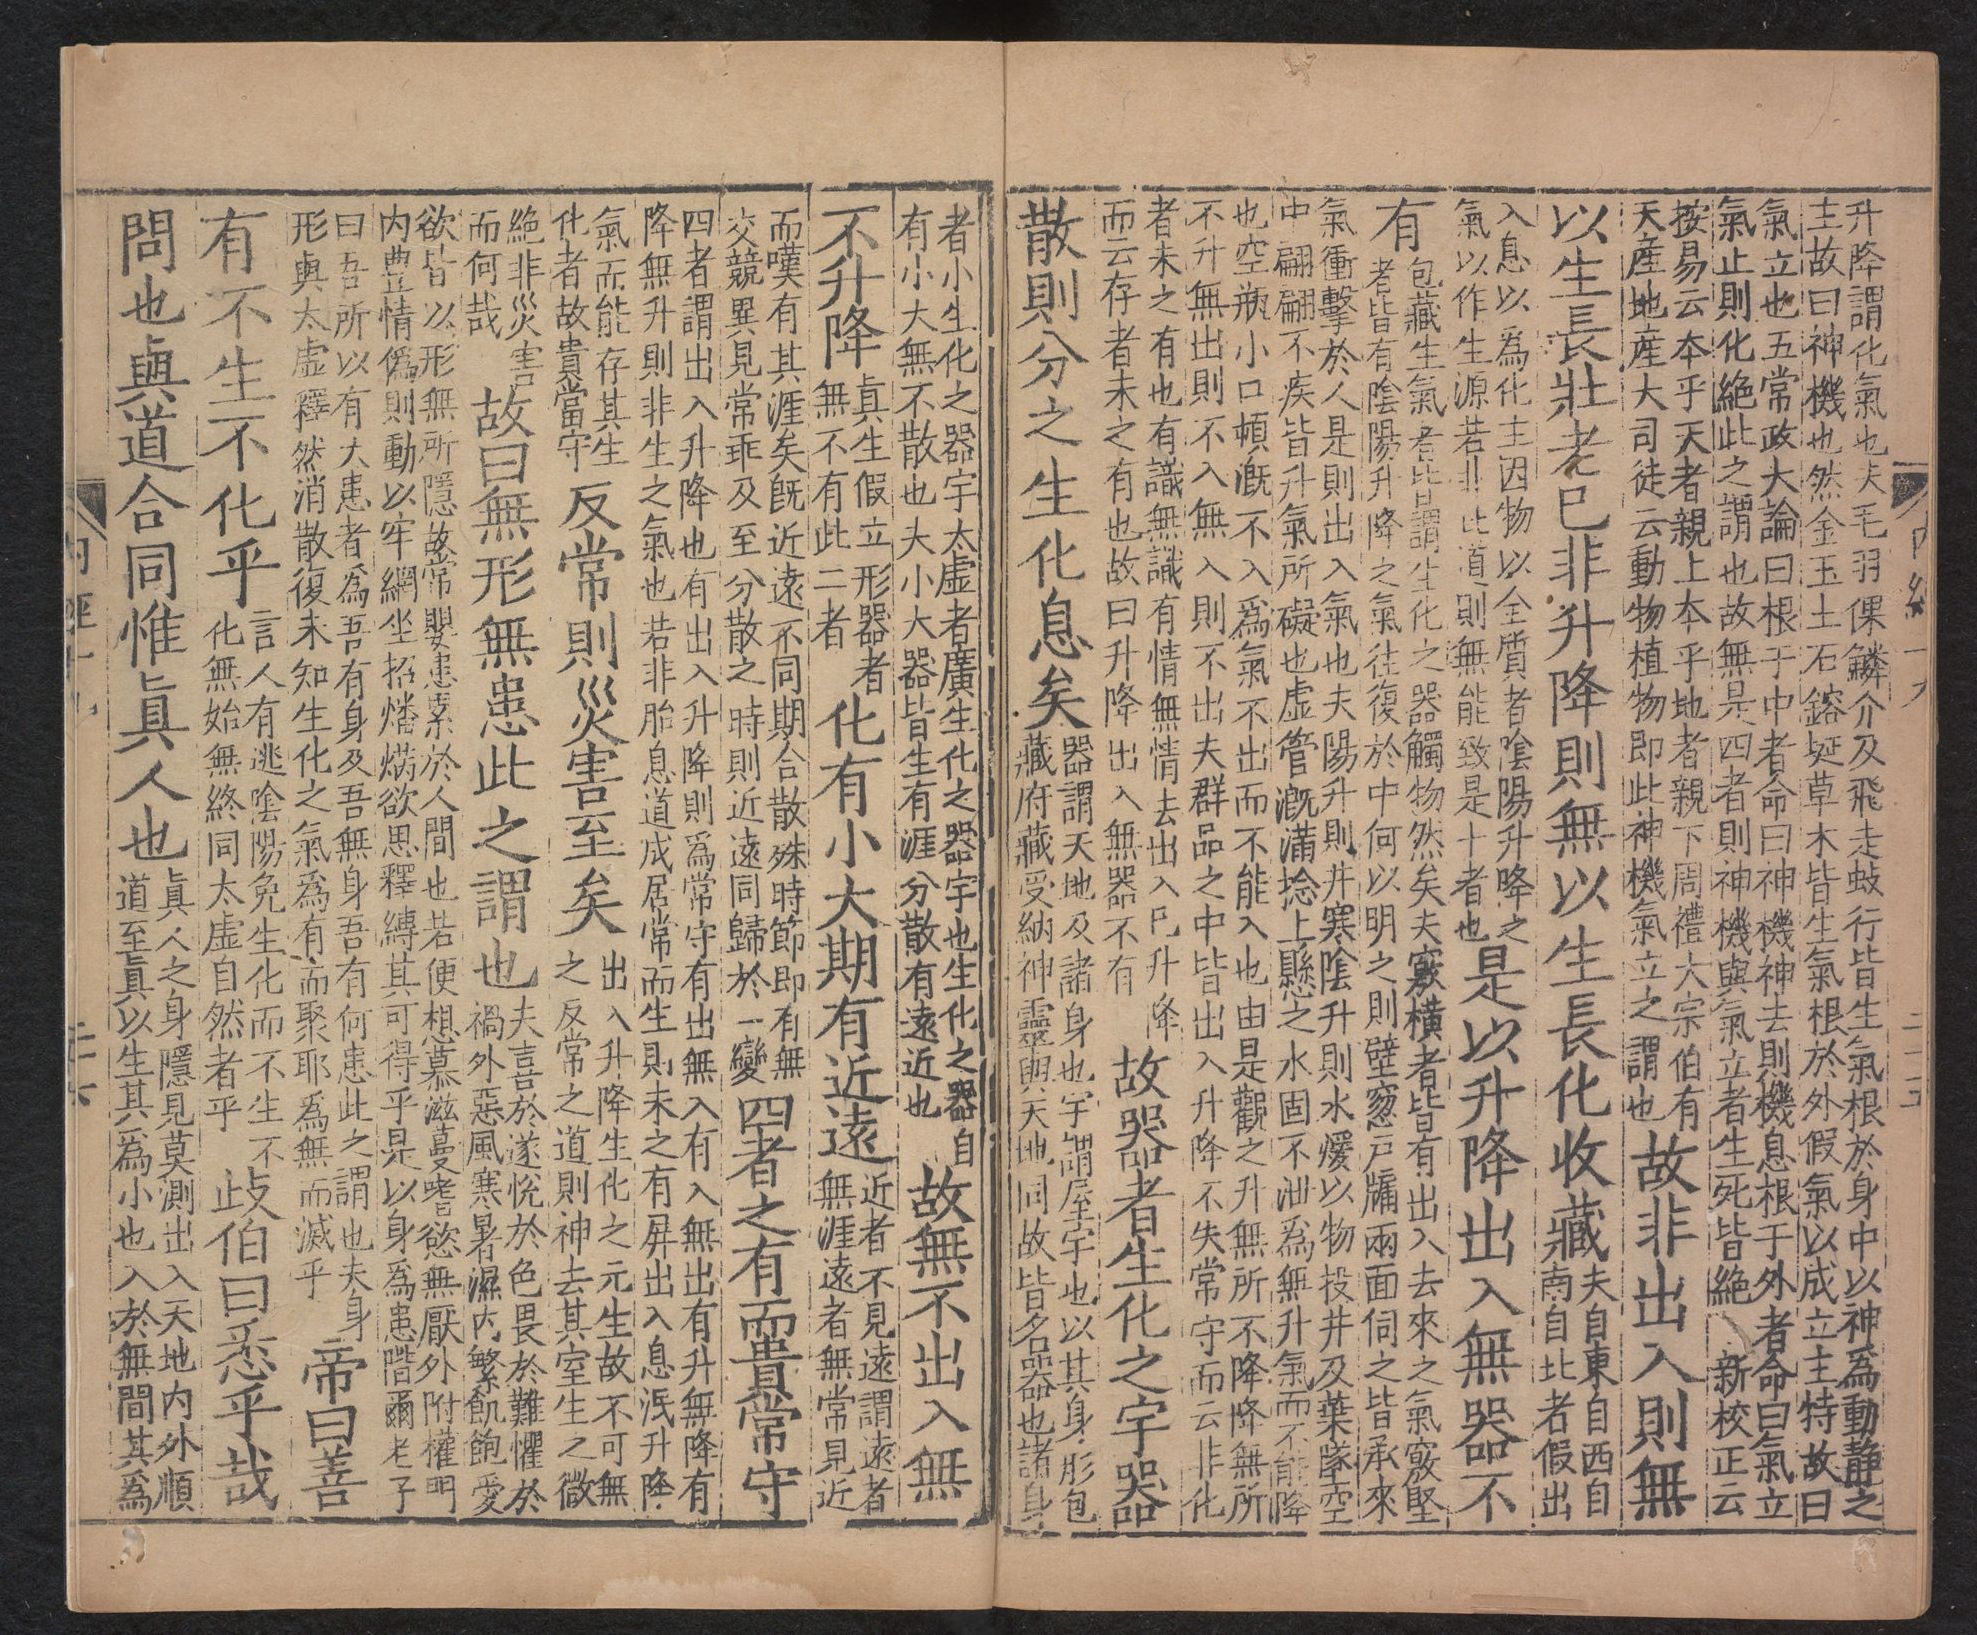 升降謂化氣也夫毛羽倮鱗介及飛走蚑行皆生氣根於身中以神爲動靜之
主故曰神機也然金玉土石鎔埏草木皆生氣根於外假氣以成立主持故曰
氣立也五常政大論曰根于中者命曰神機神去則機息根于外者命曰氣立
氣止則化絶此之謂也故無是四者則神機與氣立者生死皆絶 新校正云
按易云本乎天者親上本乎地者親下周禮大宗伯有
天産地産大司徒云動物植物即此神機氣立之謂也
故非出入則無
以生長壯老已非升降則無以生長化收藏
夫自東自西自
南自北者假出
入息以爲化主因物以全質者陰陽升降之
氣以作生源若非此道則無能致是十者也
是以升降出入無器不
有
包藏生氣者皆謂生化之器觸物然矣夫竅橫者皆有出入去來之氣竅堅
者皆有陰陽升降之氣往復於中何以明之則壁窻戸牖兩面伺之皆承來
氣衝擊於人是則出入氣也夫陽升則井寒陰升則水煖以物投井及葉墜空
中翩翩不疾皆升氣所礙也虚管溉滿捻上懸之水固不泄爲無升氣而不能降
也空瓶小口頓溉不入爲氣不出而不能入也由是觀之升無所不降降無所
不升無出則不入無入則不出夫群品之中皆出入升降不失常守而云非化
者未之有也有識無識有情無情去出入已升降
而云存者未之有也故曰升降出入無器不有
故器者生化之宇器
散則分之生化息矣
器謂天地及諸身也宇謂屋宇也以其身形包
藏府藏受納神靈與天地同故皆名器也諸身
者小生化之器宇太虚者廣生化之器宇也生化之器自
有小大無不散也夫小大器皆生有涯分散有遠近也
故無不出入無
不升降
真生假立形器者
無不有此二者
化有小大期有近遠
近者不見遠謂遠者
無涯遠者無常見近
而嘆有其涯矣旣近遠不同期合散殊時節即有無
交競異見常乖及至分散之時則近遠同歸於一變
四者之有而貴常守
四者謂出入升降也有出入升降則爲常守有出無入有入無出有升無降有
降無升則非生之氣也若非胎息道成居常而生則未之有屏出入息泯升降
氣而能存其生
化者故貴當守
反常則災害至矣
出入升降生化之元生故不可無
之反常之道則神去其室生之微
絶非災害
而何哉
故曰無形無患此之謂也
夫喜於遂悅於色畏於難懼於
禍外惡風寒暑濕內繁飢飽愛
欲皆以形無所隱故常嬰患累於人間也若便想慕滋蔓嗜慾無厭外附權門
內豊情僞則動以牢網坐招燔焫欲思釋縛其可得乎是以身爲患階爾老子
曰吾所以有大患者爲吾有身及吾無身吾有何患此之謂也夫身
形與太虚釋然消散復未知生化之氣爲有而聚耶爲無而滅乎
帝曰善
有不生不化乎
言人有逃陰陽免生化而不生不
化無始無終同太虚自然者乎
歧伯曰悉乎哉
問也與道合同惟真人也
真人之身隱見莫測出入天地內外順
道至真以生其爲小也入於無間其爲